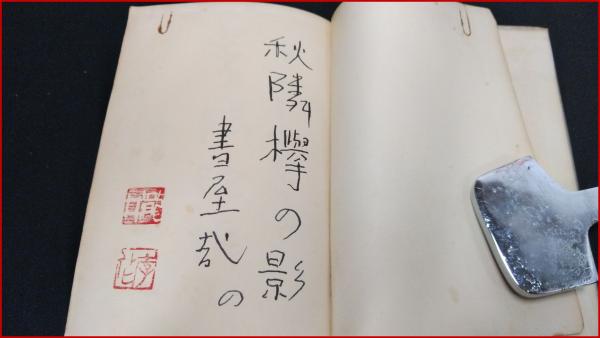 秋隣欅の影
書屋哉の